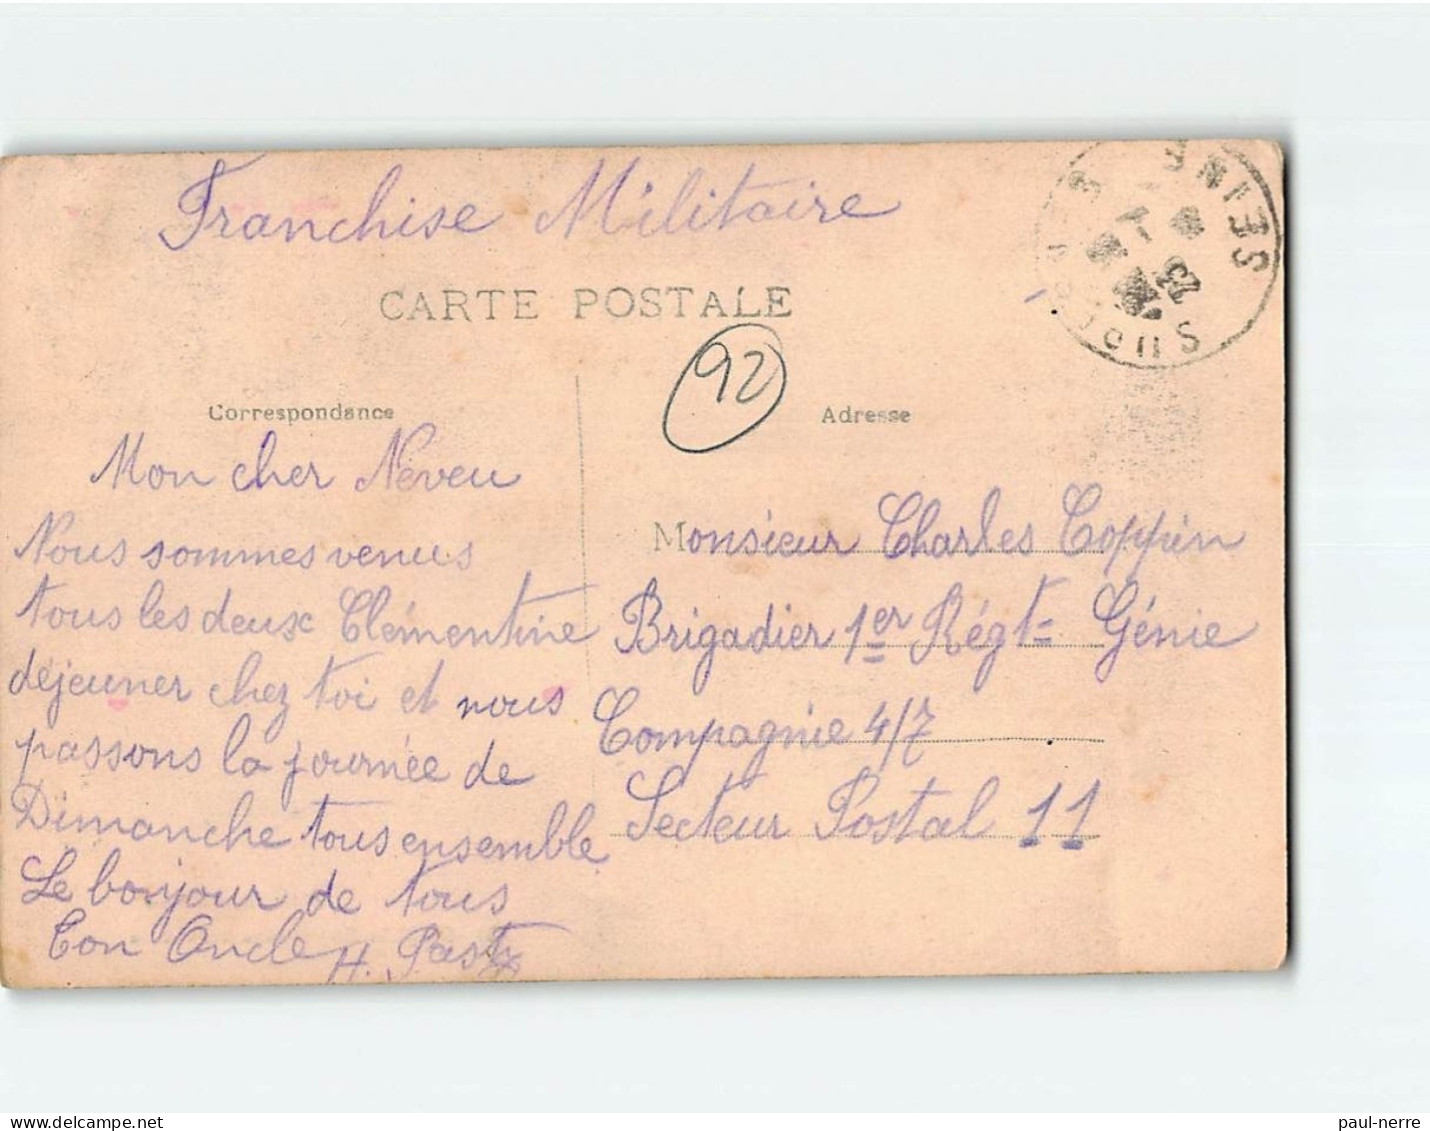 Franchise Militaire
CARTE POSTALE
92
SEINE
Correspondance
Adresse
Mon cher Neveu
Nous sommes venus
tous les deux Clémentine
déjeuner chez toi et nous
passons la journée de
Dimanche tous ensemble
Le bonjour de tous
Ton Oncle H.
Monsieur Charles Coppin
Brigadier 1er Régt Génie
Compagnie 4/7
Secteur Postal 11
delcampe.net
paul-nerre